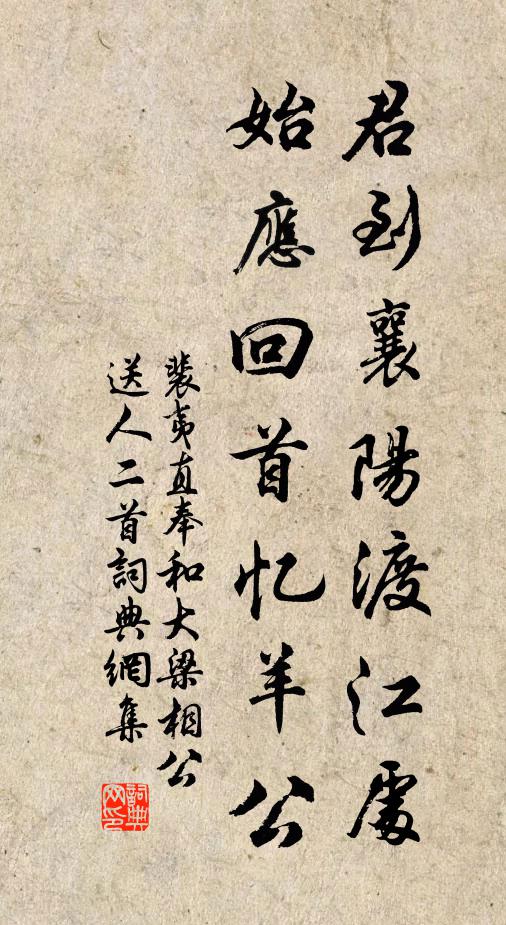 君到襄陽渡江處
始應回首忆羊公
裴夷直奉和大梁相公
送人二首詞典網集
詞典
网印